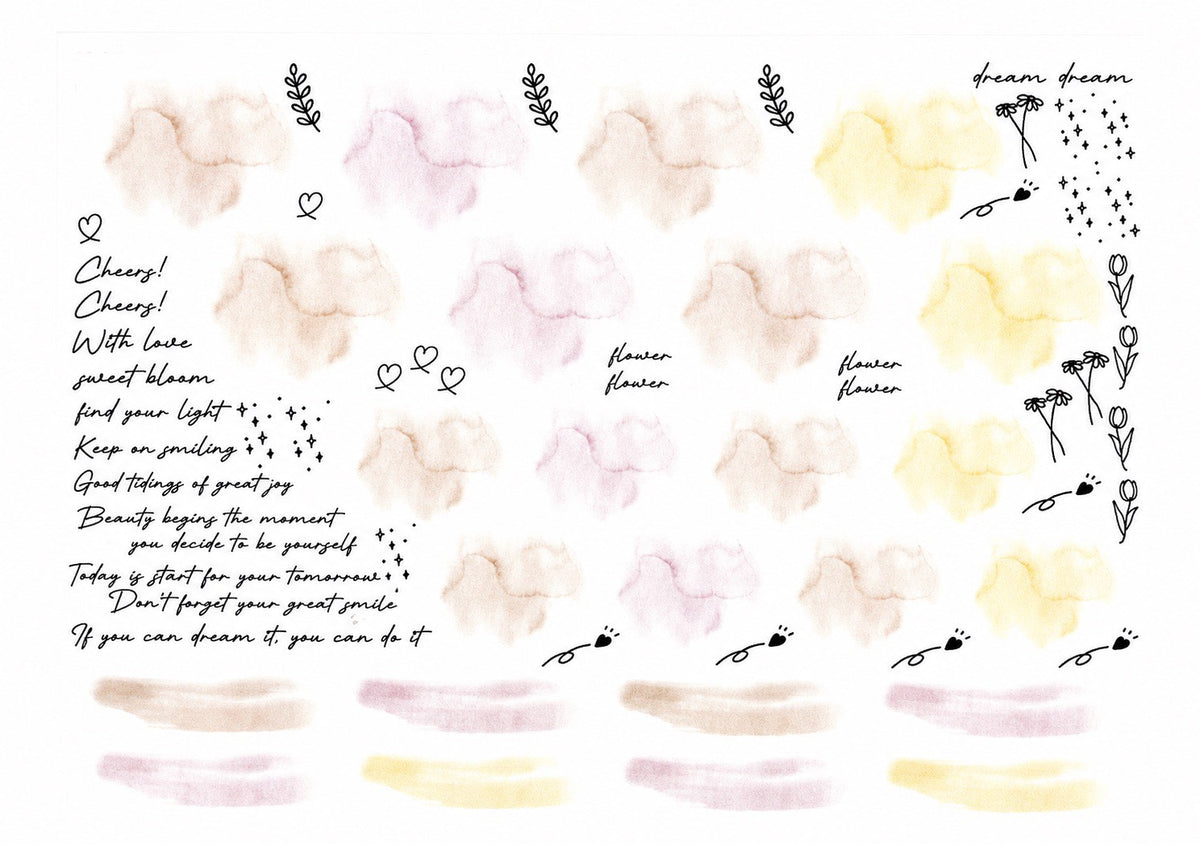 dream dream
Cheers!
Cheers!
With love
sweet bloom
find your light
Keep on smiling
Good tidings of great joy
Beauty begins the moment
you decide to be yourself
Today is start for your tomorrow
Don't forget your great smile
If you can dream it, you can do it
flower
flower
flower
flower